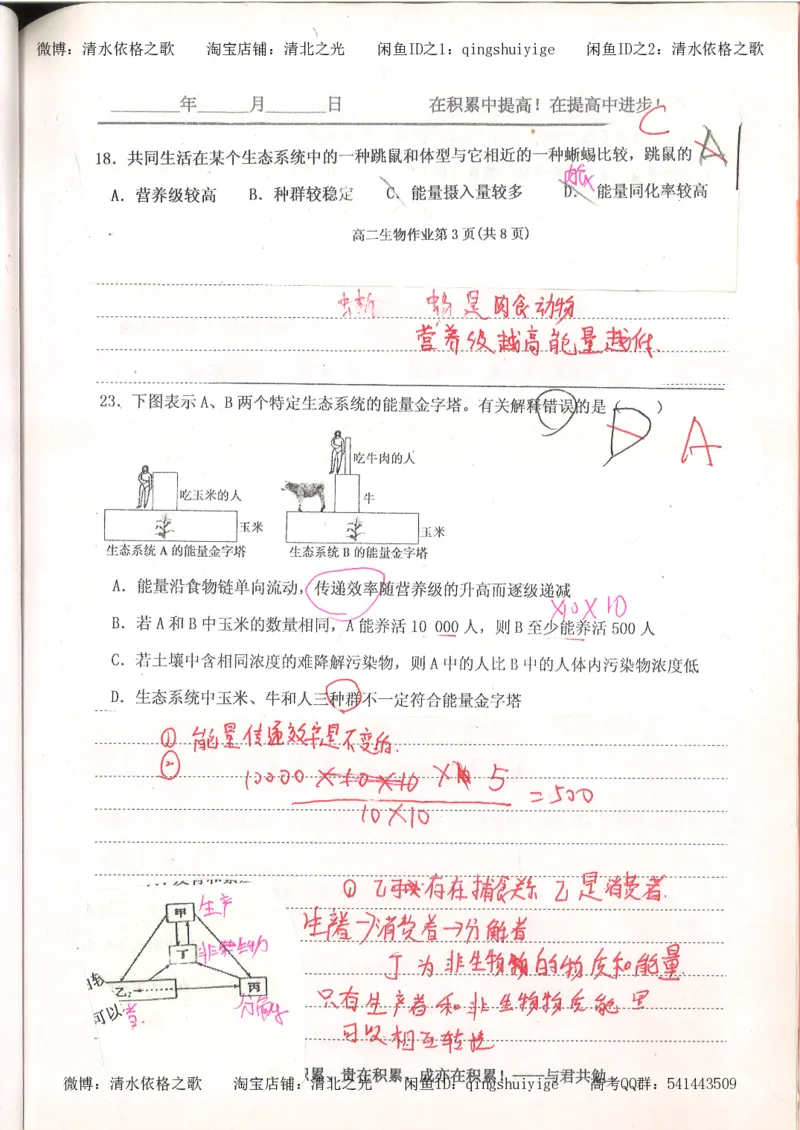 微博：清水依格之歌 淘宝店铺：清北之光 闲鱼ID之1：qingshuiyige 闲鱼ID之2：清水依格之歌
年 月 日 在积累中提高！在提高中进步！
C
A
18．共同生活在某个生态系统中的一种跳鼠和体型与它相近的一种蜥蜴比较，跳鼠的
A．营养级较高 B．种群较稳定 C．能量摄入量较多 D．能量同化率较高
高二生物作业第3页(共8页)
蜥 蜴是肉食动物
营养级越高能量越低.
23．下图表示A、B两个特定生态系统的能量金字塔。有关解释错误的是（ ）
D A
吃玉米的人
玉米
生态系统A的能量金字塔
吃牛肉的人
牛
玉米
生态系统B的能量金字塔
A．能量沿食物链单向流动，传递效率随营养级的升高而逐级递减
X10X10
B．若A和B中玉米的数量相同，A能养活10 000人，则B至少能养活500人
C．若土壤中含相同浓度的难降解污染物，则A中的人比B中的人体内污染物浓度低
D．生态系统中玉米、牛和人三种群不一定符合能量金字塔
① 能量传递效率是不变的.
②
10000 ×10×10 × 5
10×10
=500
甲 生产
丁
乙
丙
可以
① 乙 存在捕食关系 乙是消费者.
生产者→消费者→分解者
丁为非生物的物质和能量
只有生产者和非生物物质能
可以相互转
积累，贵在积累，成亦在积累！——与君共勉
微博：清水依格之歌 淘宝店铺：清北之光 闲鱼ID：qingshuiyige 高考QQ群：541443509